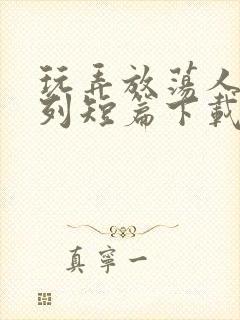 玩弄放荡人
列短篇下载
真宁一